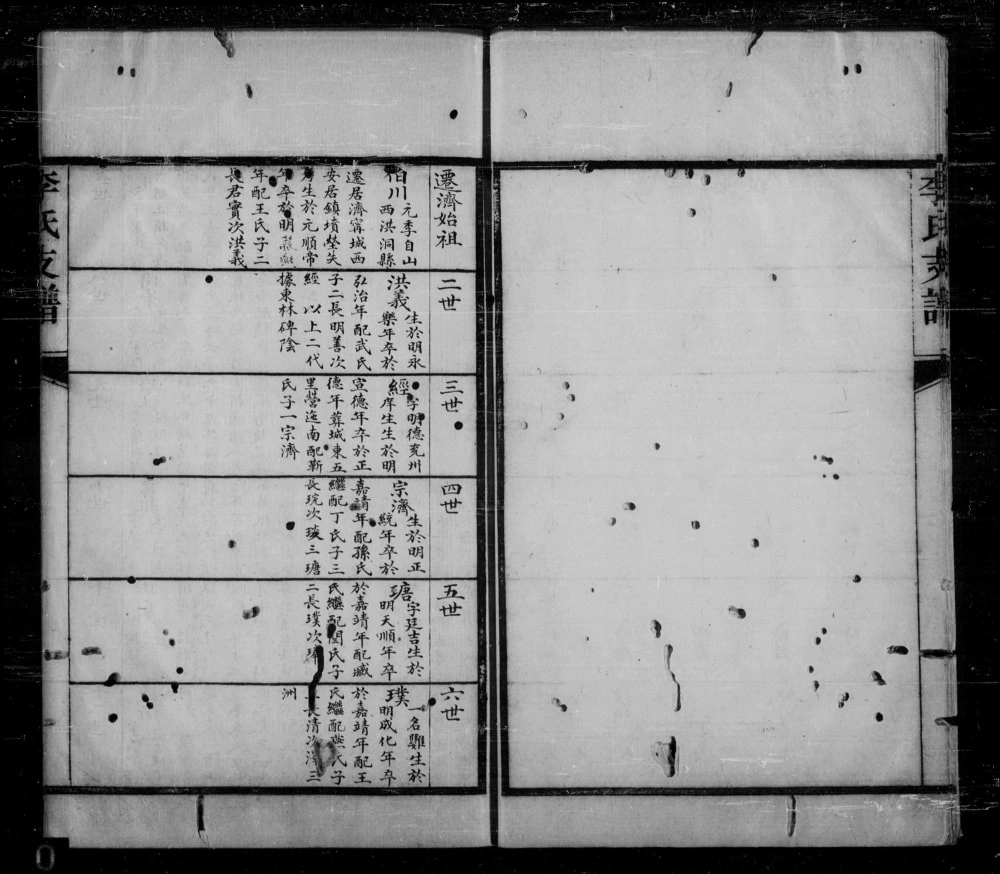 李氏支譜
遷濟始祖
伯川
元季自山
西洪洞縣
遷居濟甯城西
安居鎮墳塋失
生於元順帝
年卒於明
年配王氏子二
長君實次洪義
二世
洪義
生於明永
樂年卒於
弘治年配武氏
子二長明善次
經 以上二代
據東林碑陰
三世
經
字明德兖州
庠生生於明
宣德年卒於正
德年葬城東五
里營迤南配靳
氏子一宗濟
四世
宗濟
生於明正
統年卒於
嘉靖年配孫氏
繼配丁氏子三
長琓次琰三瑭
五世
瑭
字廷吉生於
明天順年卒
於嘉靖年配臧
氏繼配閆氏子
二長璞次
六世
璞
一名
生於
明成化年卒
於嘉靖年配王
氏繼配燕氏子
長清次
三
洲
李氏支譜